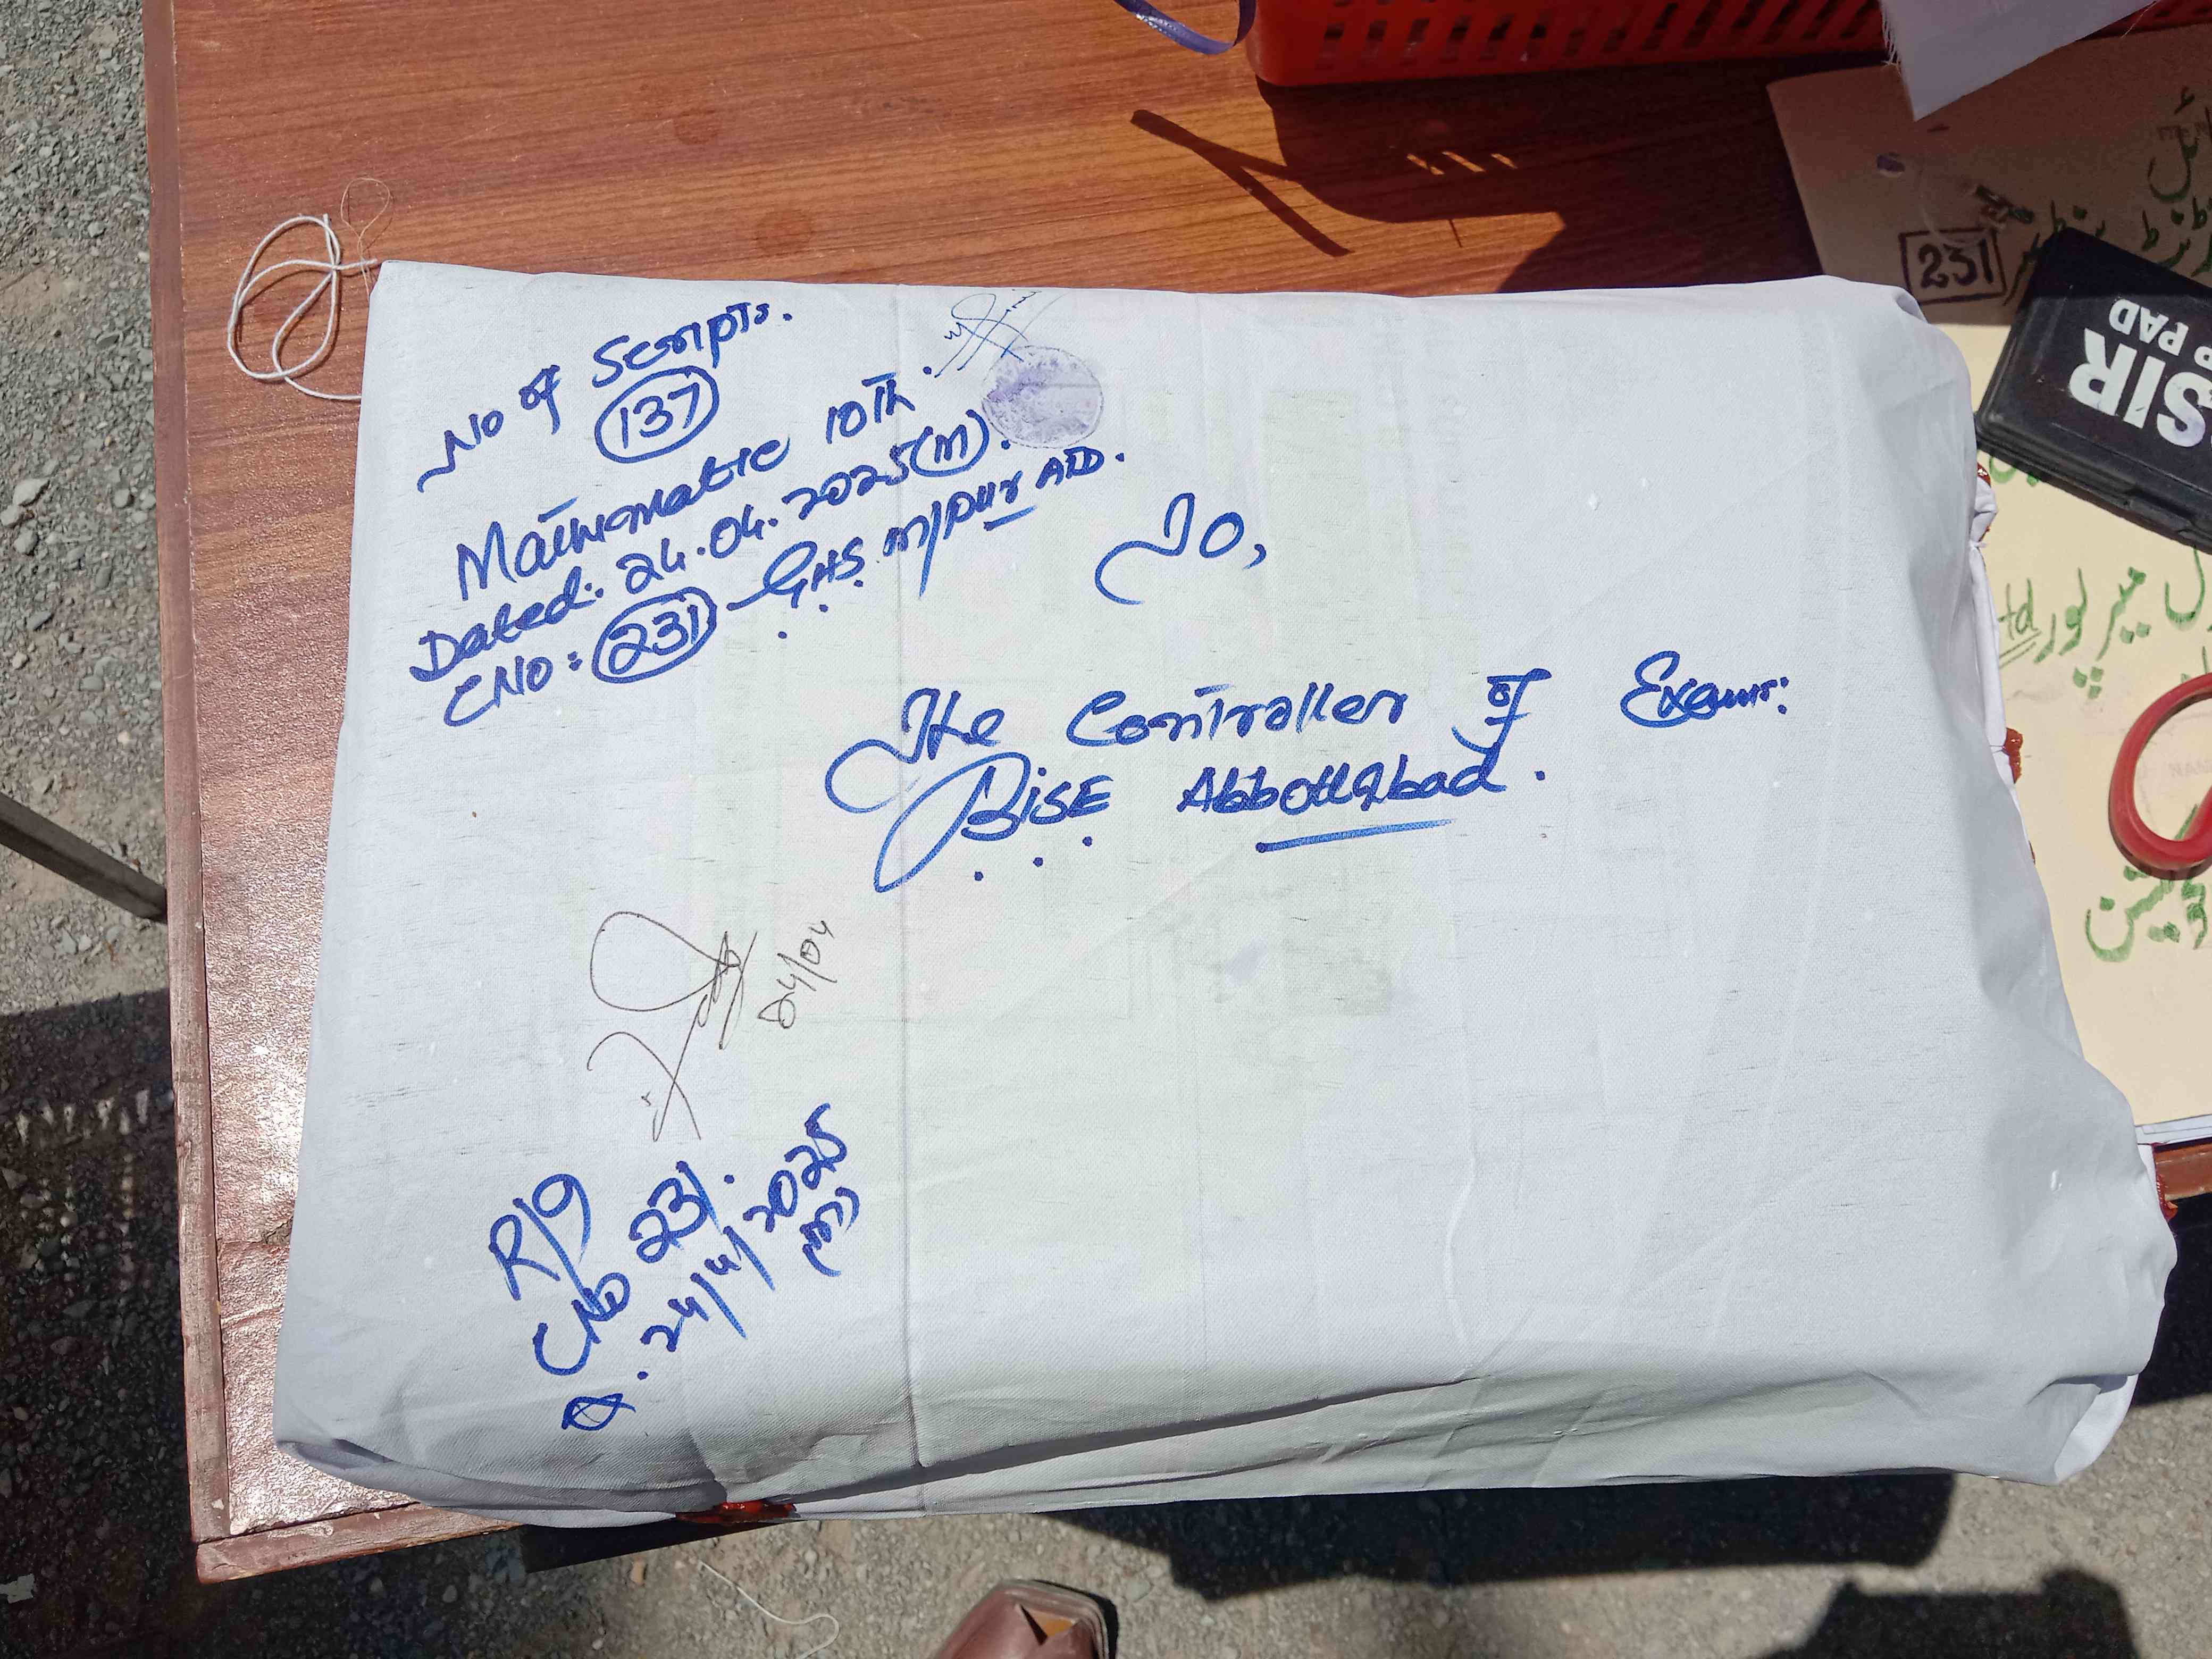 No of Scripts.
137
Mathematic 10th.
Dated: 24.04.2025(M).
CNO: 231 GHS M/pur ATD.
To,
The Controller of Exams:
BiSE Abbottabad.
24/04
R/9
CNo 231.
D. 24/4/2025
(M)
231
SIR
PAD
میر پور